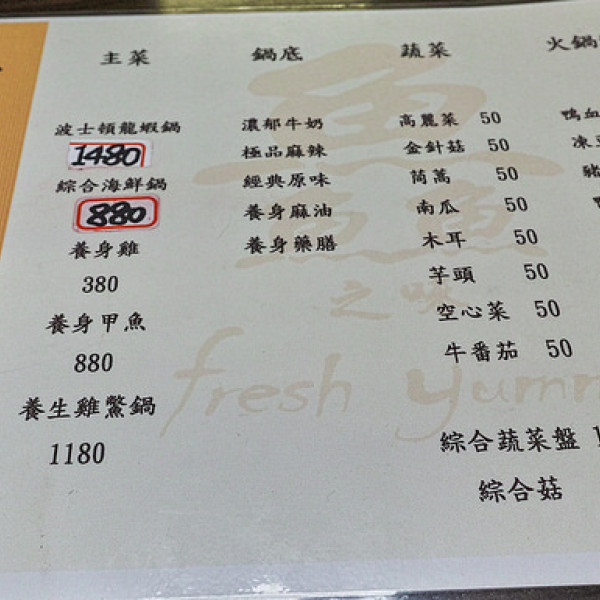 主菜
波士頓龍蝦鍋
1480
綜合海鮮鍋
880
養身雞
380
養身甲魚
880
養生雞鱉鍋
1180
鍋底
濃郁牛奶
極品麻辣
經典原味
養身麻油
養身藥膳
蔬菜
高麗菜 50
金針菇 50
茼萵 50
南瓜 50
木耳 50
芋頭 50
空心菜 50
牛番茄 50
綜合蔬菜盤
綜合菇
火鍋
鴨血
凍
豬
fresh yum